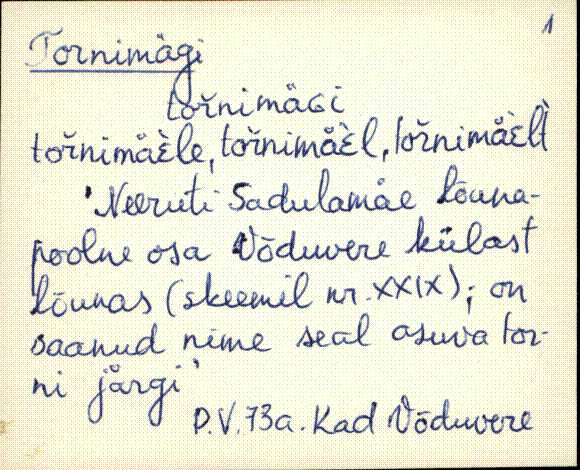 1
Tornimägi
tořnimäGi
tořnimäὲle, tořnimäὲl, tořnimäὲlt̀
'Neeruti Sadulamäe lõuna-
poolne osa Võduvere külast
lõunas (skeemil nr. XXIX); on
saanud nime seal asuva tor-
ni järgi'
P.V. 73a. Kad Võduvere